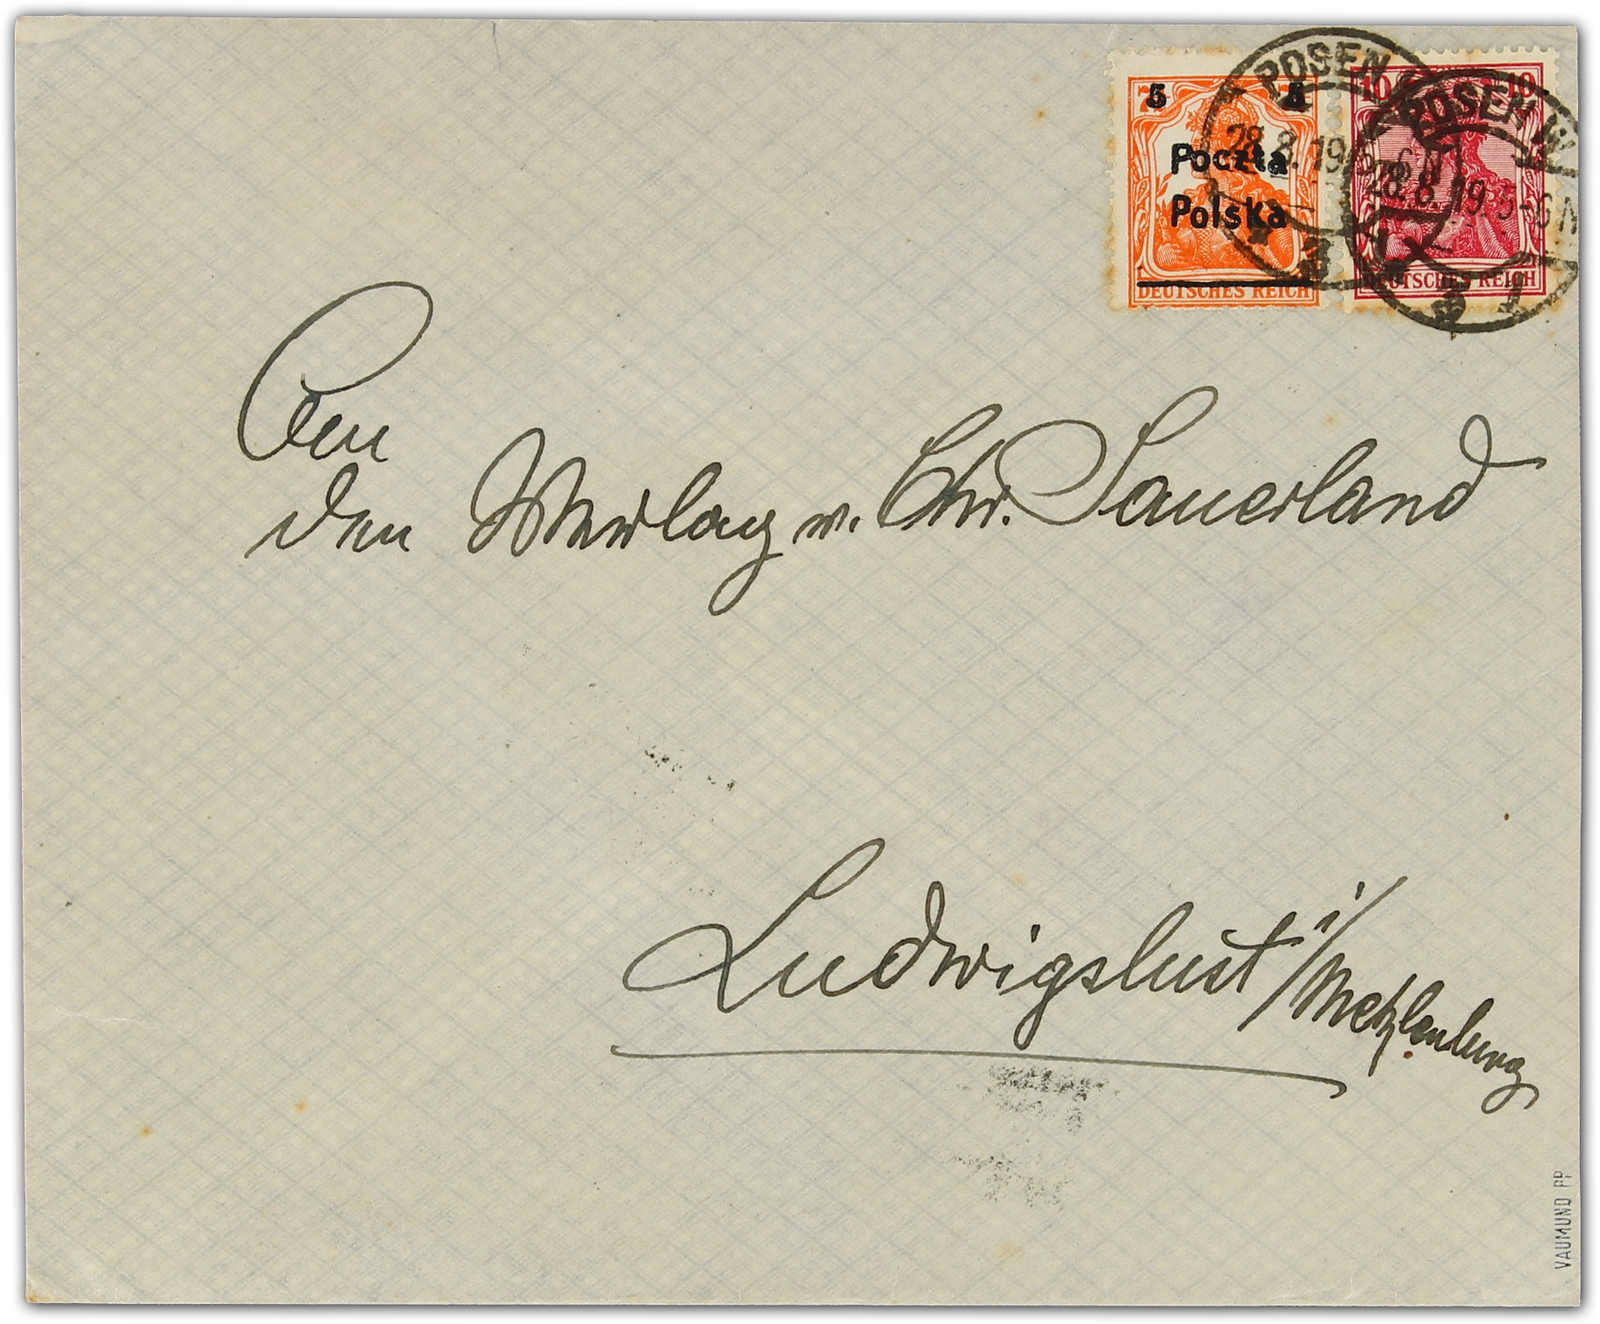 5 5
Poczta
Polska
DEUTSCHES REICH
10 10
DEUTSCHES REICH
POSEN
28.8.19
POSEN W
28.8.19.5-6N
3 1
An
den Verlag v. Chr. Sauerland
Ludwigslust i/Mecklenburg
VAUMUND PP